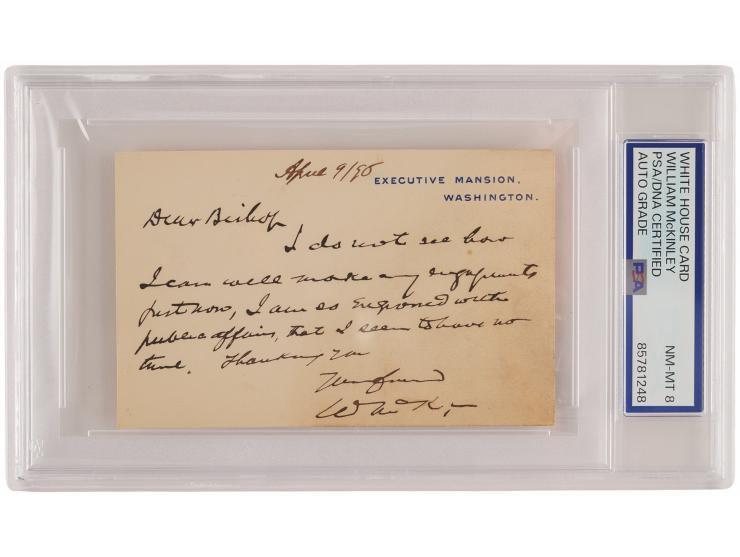 April 9/98
EXECUTIVE MANSION,
WASHINGTON.
Dear Bishop
I do not see how
I can well make any engagements
just now, I am so engrossed with
public affairs, that I seem to have no
time. Thanking you
Your friend
W McK
WHITE HOUSE CARD
WILLIAM McKINLEY
PSA/DNA CERTIFIED
AUTO GRADE
PSA
NM-MT 8
85781248